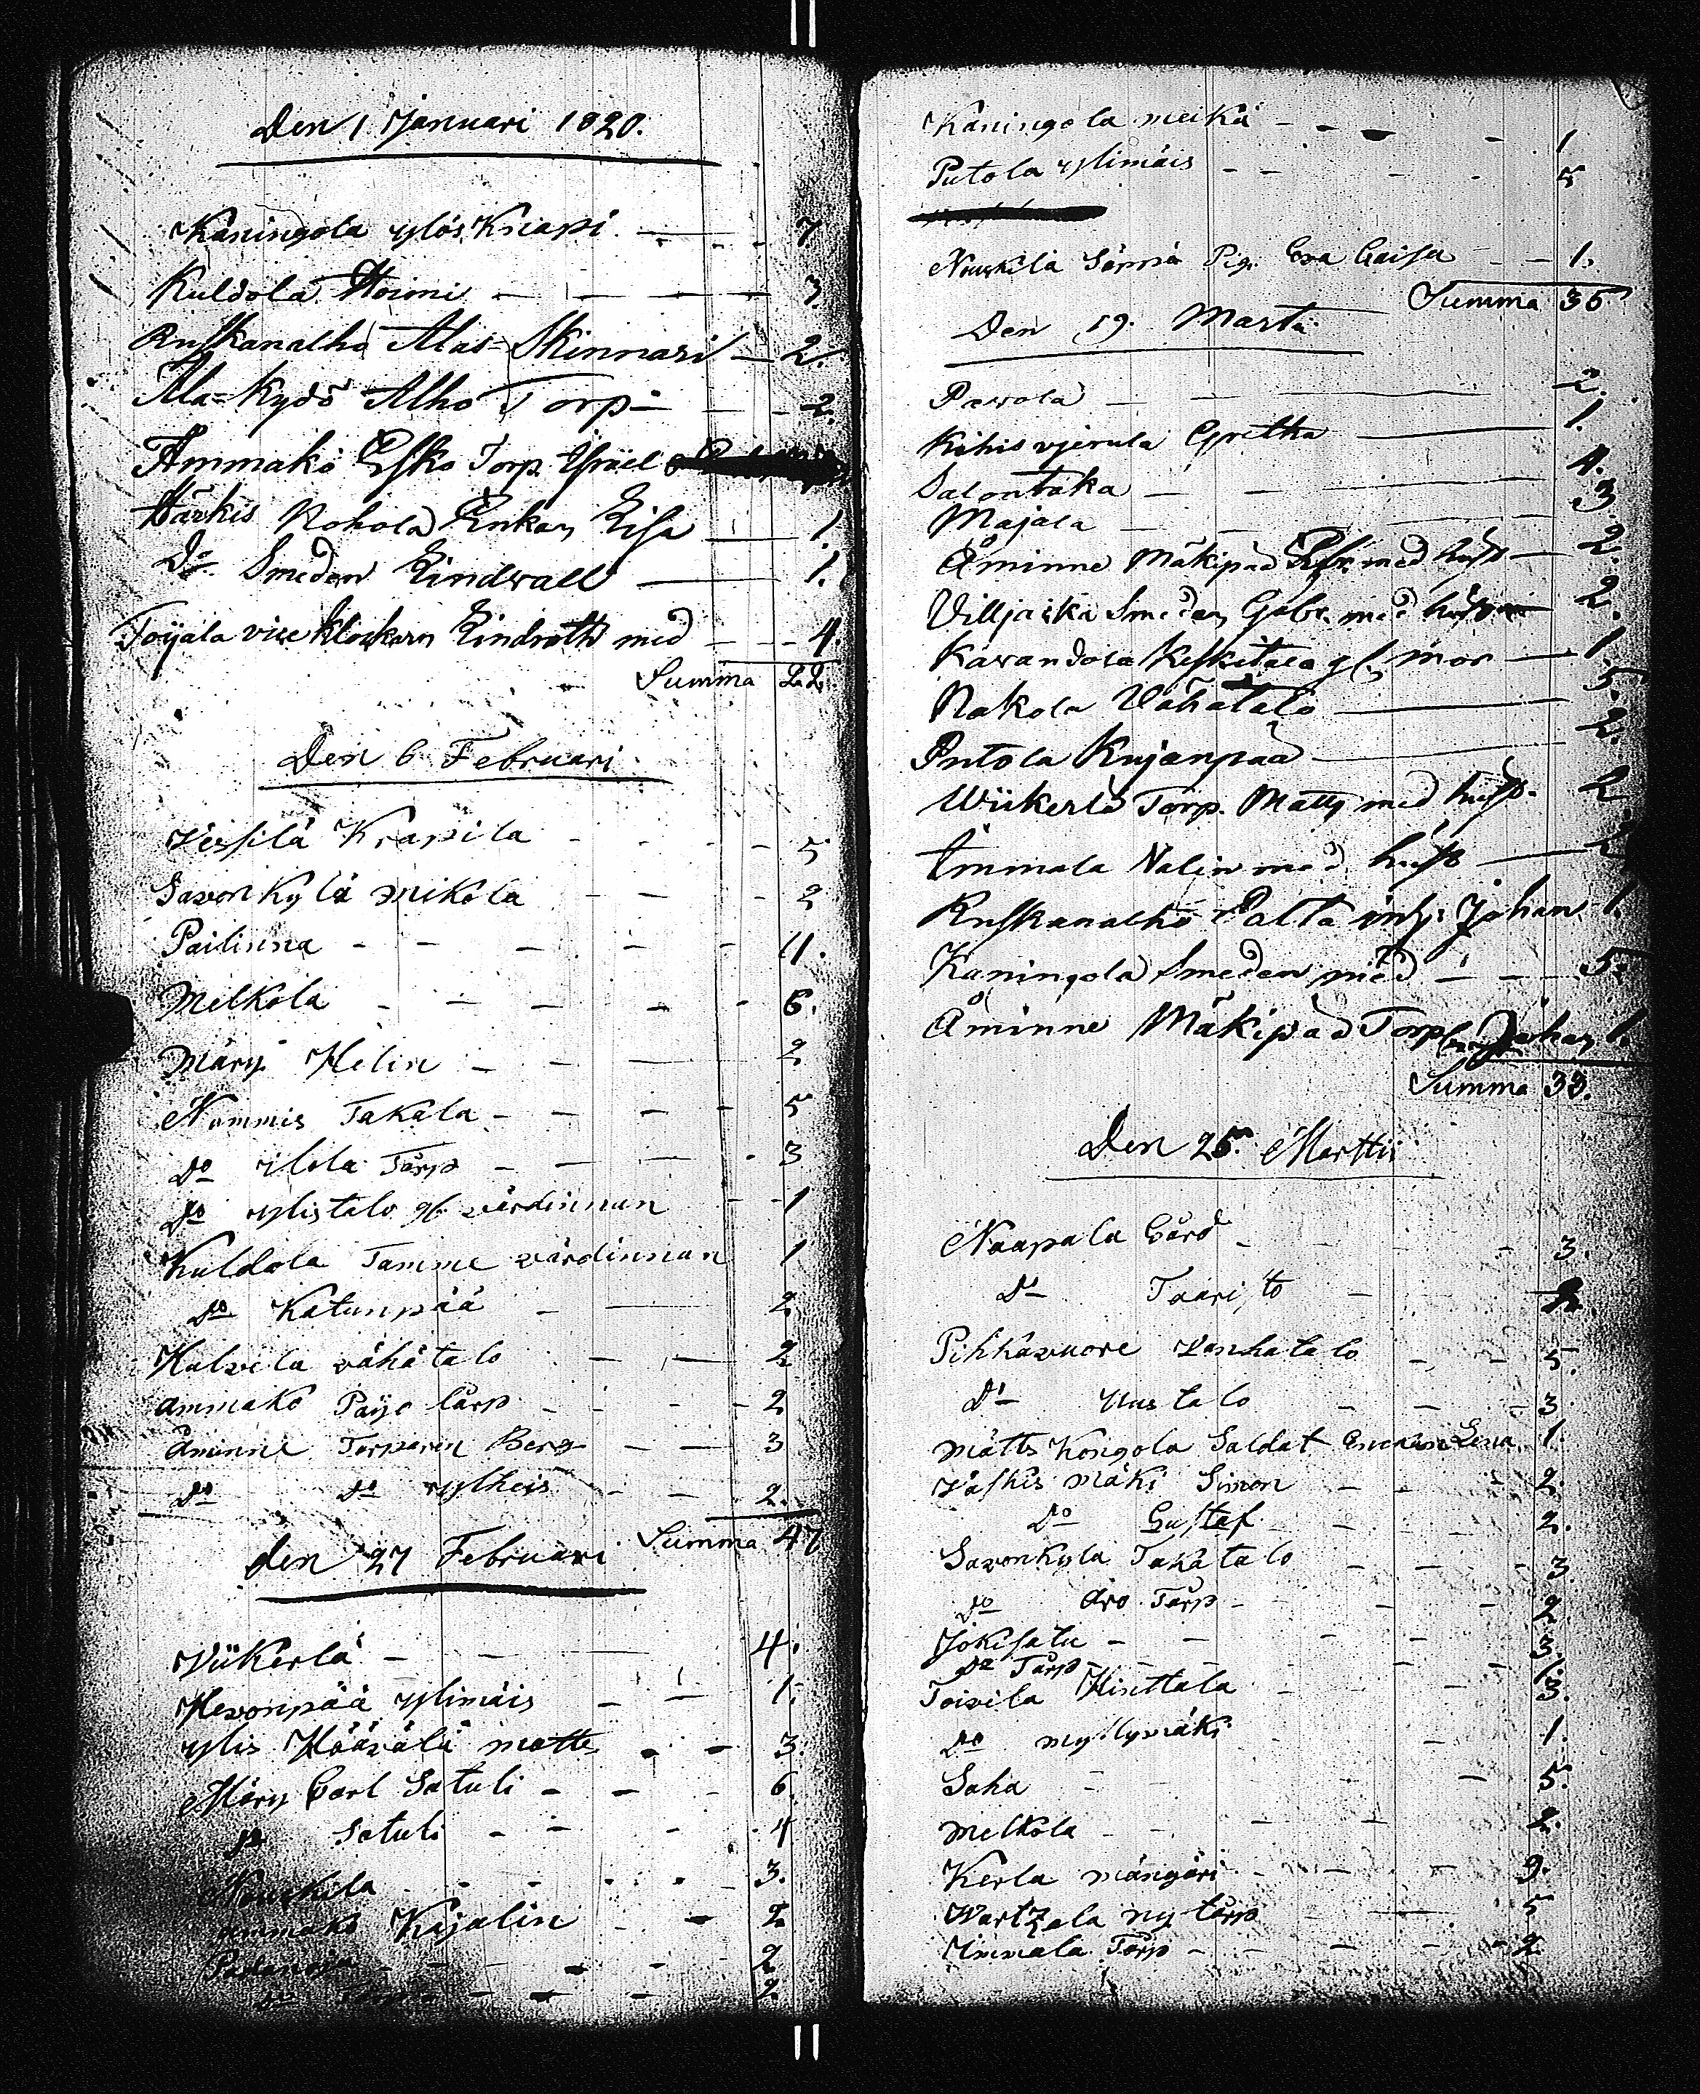 Den 1 Januari 1820.
Kaningola ylös Knapi 7
Kuldola Hoimi 3
Ruskanalho Alas=Skinnari 2.
Ala=Kydö Alho Torp 2.
Ammakö Esko Torp. Israel
Härkis Nohola Enkan Lisa 1.
Do Smeden Lindvall 1.
Toijala vice klockarn Lindroth med 4.
Summa 22.
Den 6 Februari
Krapila 5
Savonkylä mikola 2
Pailinna 11.
Melkola 6.
Märy Helin 2
Nummis Takala 5
Do ilola Tårp 3
Do ylistalo gl. värdinnan 1
Kuldola Tamme värdinnan 1
Do Katunpää 2
Halvila vähätalo 2
ammakö Paijo tårp 2
Åminne Torparen Berg 3
Do Do ylheis 2.
Summa 47
den 27 Februari
Viikerlä 4.
Hevonpää ylimäis 1.
ylis Hääväla matts 3.
Märy Carl Satuli 6
Do Satuli 4
Nouskila 3.
ammakö Kajalin 2
2
Do 2.
Kaningola meikä 1
Putola ylimäis 5
Nouskila Sörmä Pig. Eva Caisa 1.
Summa 35
Den 19. Martii
Pavola 2.
Kihis vjerula Gretha 1.
Salontaka 4.
Majala 3.
Åminne Mäkipää med hust 2.
Viljaika Smeden Gabr. med hust 2.
Kavandola Keskitalo gl. mor 1
Nokola Vähätalo 5.
Putola Kujanpää 2.
Wiikerlä Torp. Matts med hust. 2
Immala Nalin med hust 2
Ruskanalho Palta inh: Johan 1.
Kaningola Smeden med 5.
Åminne Mäkipää Torp Johan 1.
Summa 33.
Den 25. Martii
Naapala Gård 3.
Do Taaristo 2
Pihkavuore Vanhatalo 5.
Do Uustalo 3
Matts Kongola Saldat Enckan Lena 1.
Vaskis mäki Simon 2.
Do Gustaf 2.
Savonkyla Takatalo 3.
Do Aro Tårp 2
Jokisatu 3.
Do Tårp 1.
Toivila Hinttala 3.
Do myllymäki 1.
Saha 5.
Melkola 2.
Kerla mängäri 9.
Wartzala ny tårp 5
Immala Tårp 2